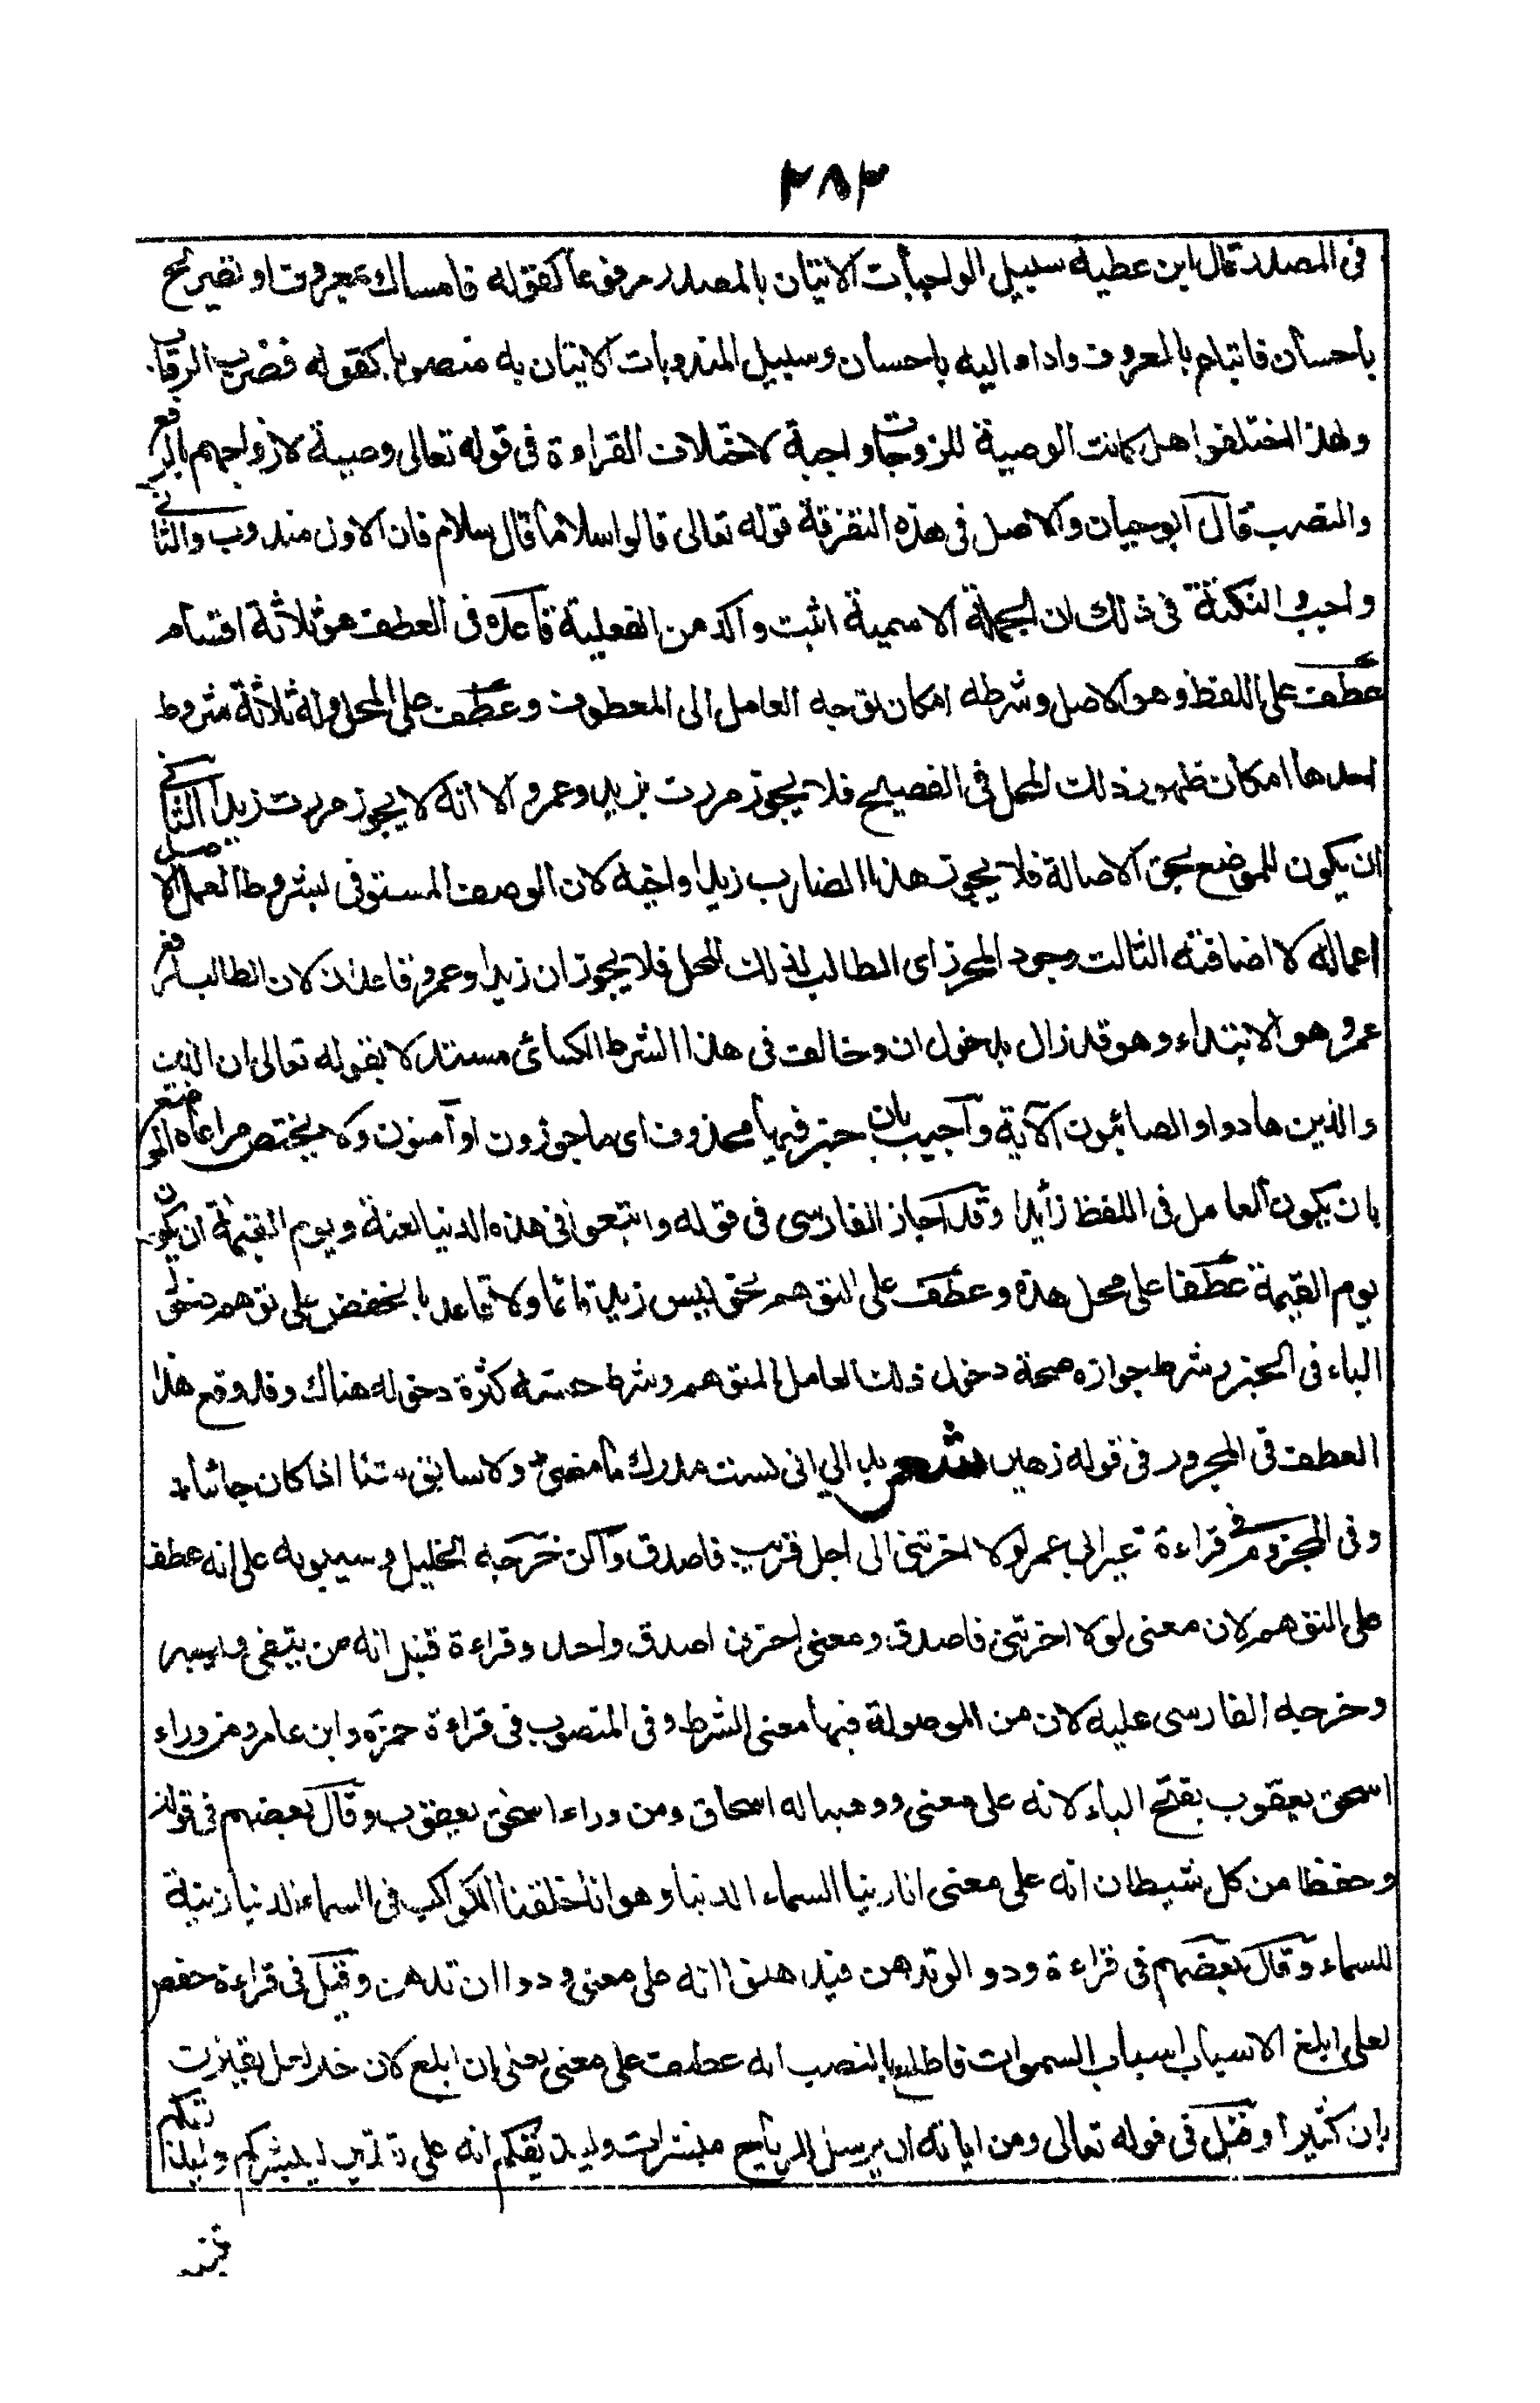 ٢٨٢
فى المصدر قال ابن عطية سبيل الواجبات الاتيان بالمصدر مرفوعا كقوله فامساك بمعروف او تسريح
باحسان فاتباع بالمعروف واداء اليه باحسان وسبيل المندوبات الاتيان به منصوبا كقوله فضرب الرقاب
ولهذا اختلفوا هل كانت الوصية للزوجات واجبة لاختلاف القراءة فى قوله تعالى وصية لازواجهم بالرفع
والنصب قال ابو حيان والاصل فى هذه التفرقة قوله تعالى قالوا سلاما قال سلام فان الاول مندوب والثانى
واجب والنكتة فى ذلك ان الجملة الاسمية اثبت واكد من الفعلية قاعدة فى العطف هو ثلاثة اقسام
عطف على اللفظ وهو الاصل وشرطه امكان توجه العامل الى المعطوف وعطف على المحل وله ثلاثة شروط
احدها امكان ظهور ذلك المحل فى الفصيح فلا يجوز مررت بزيد وعمرو الا انه لا يجوز مررت زيدا الثانى
ان يكون الموضع بحق الاصالة فلا يجوز هذا الضارب زيدا واخيه لان الوصف المستوفى لشروط العمل الاصل
اعماله لا اضافته الثالث وجود المحرز اى الطالب لذلك المحل فلا يجوز ان زيدا وعمرو قاعدان لان الطالب لرفع
عمرو هو الابتداء وهو قد زال بدخول ان وخالف فى هذا الشرط الكسائى مستدلا بقوله تعالى ان الذين
والذين هادوا والصائبون الآية وآجيب بان خبر فيها محذوف اى ماجورون او آمنون وكا يختص مراعاة الموضع
بان يكون العامل فى اللفظ زائدا وقد اجاز الفارسى فى قوله واتبعوا فى هذه الدنيا لعنة ويوم القيمة ان يكون
يوم القيمة عطفا على محل هذه وعطف على التوهم نحو ليس زيد قائما ولا قاعد بالخفض على توهم دخول
الباء فى الخبر وشرط جوازه صحة دخول ذلك العامل المتوهم وشرط حسنه كثرة دخوله هناك وقد وقع هذا
العطف فى المجرور فى قوله زهير شعر بدا لي انى لست مدرك ما مضى ولا سابق شئا اذا كان جائيا
وفى المجزوم فى قراءة غير ابى عمر لولا اخرتنى الى اجل قريب فاصدق وآكن خرجه الخليل وسيبويه على انه عطف
على التوهم لان معنى لولا اخرتنى فاصدق ومعنى اخرنى اصدق واحد وقراءة قنبل انه من يتقى ويصبر
وخرجه الفارسى عليه لان من الموصولة فيها معنى الشرط وفى المنصوب فى قراءة حمزه وابن عامر ومن وراء
اسحق يعقوب بفتح الباء لانه على معنى ووهبنا له اسحاق ومن وراء اسحق يعقوب وقال بعضهم فى قوله
وحفظا من كل شيطان انه على معنى انا زينا السماء الدنيا وهو انا خلقنا الكواكب فى السماء الدنيا زينة
للسماء وقال بعضهم فى قراءة ودوا لو تدهن فيدهنوا انه على معنى ودوا ان تدهن وقيل فى قراءة حفص
لعلى ابلغ الاسباب اسباب السموات فاطلع بالنصب انه عطف على معنى لعلى ان ابلغ لان خبر لعل يقترن
بان كثيرا وقيل فى قوله تعالى ومن اياته ان يرسل الرياح مبشرات وليذيقكم انه على تقدير ليبشركم وليذيقكم